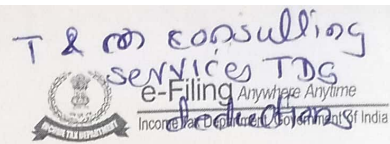 T & M consulling
services TDS
e-Filing Anywhere Anytime
Income Tax Department, Government of India
deductions
INCOME TAX DEPARTMENT